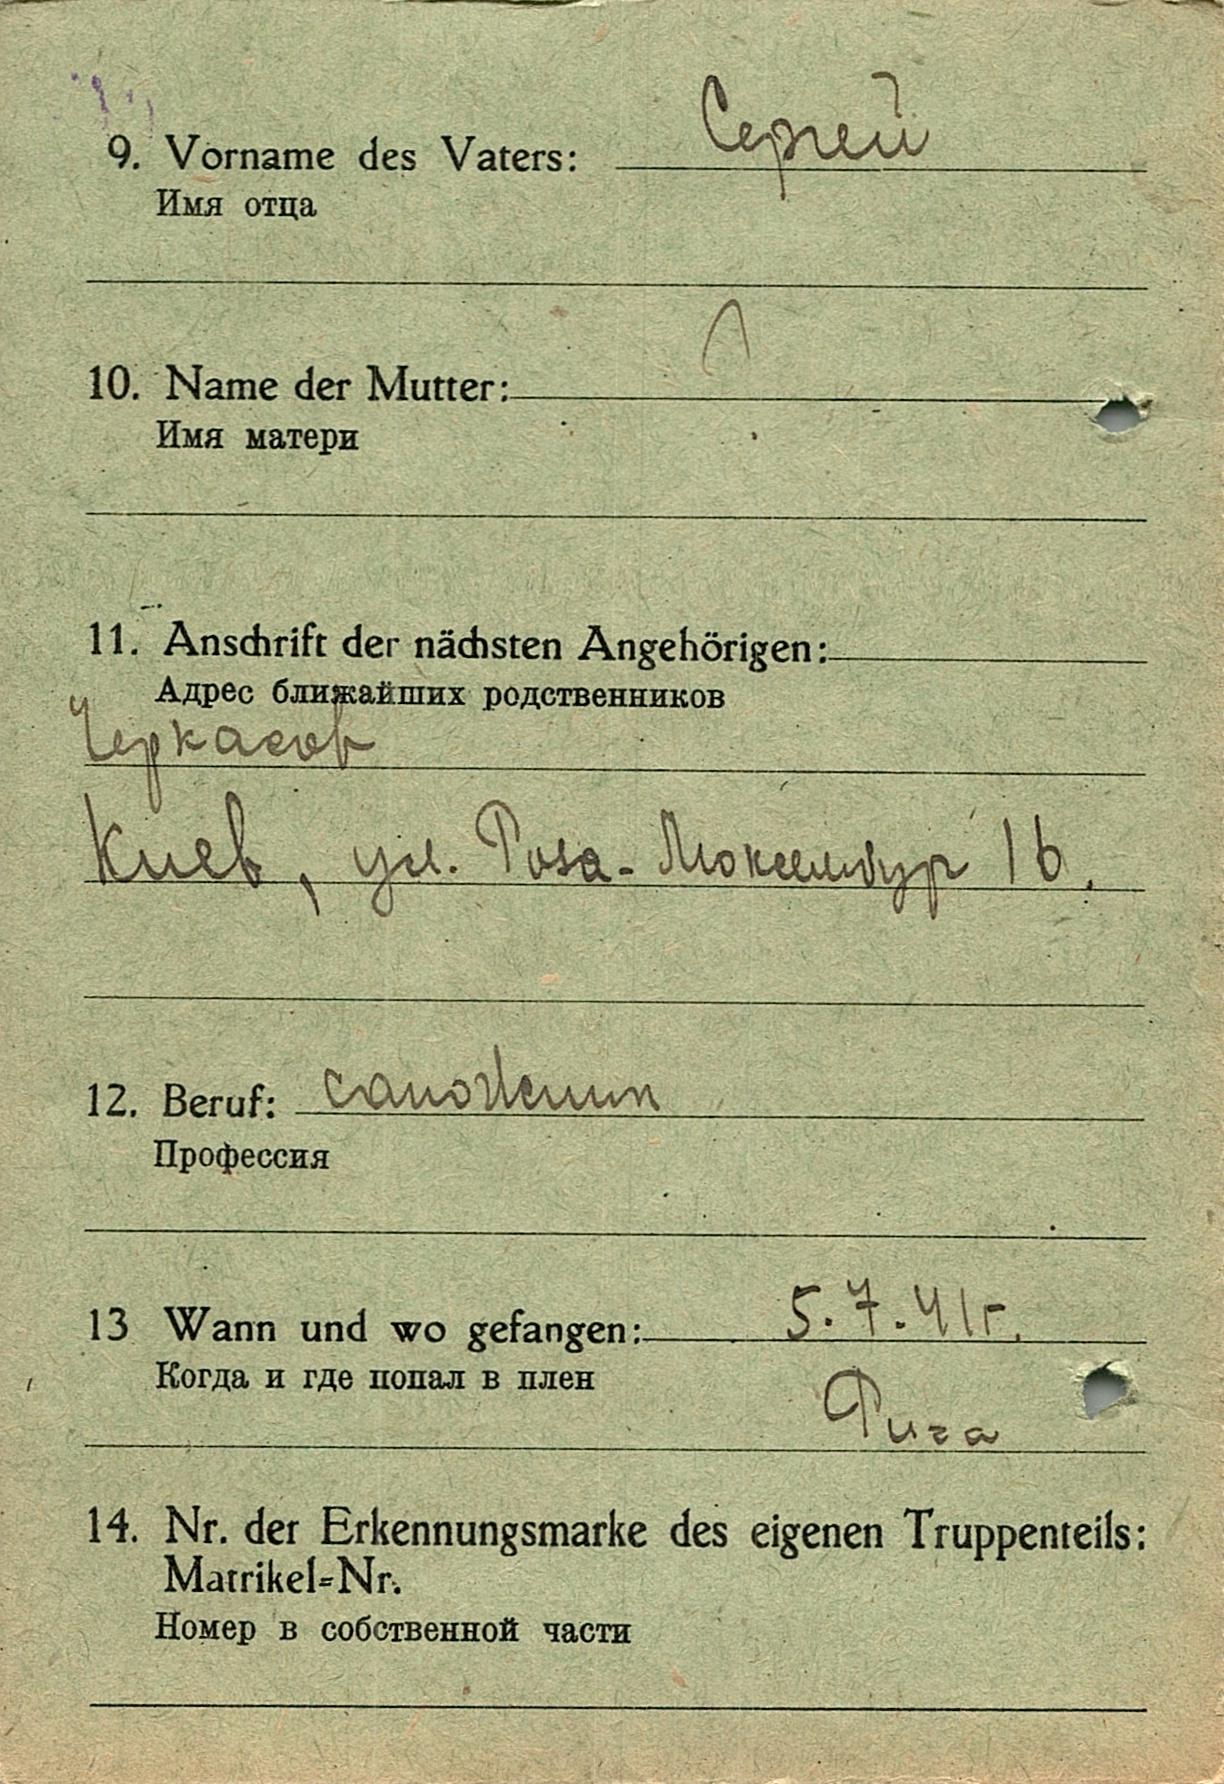 9. Vorname des Vaters: Сергей
Имя отца
10. Name der Mutter:
Имя матери
11. Anschrift der nächsten Angehörigen:
Адрес ближайших родственников
Черкасов
Киев, ул. Роза-Люксембур 16.
12. Beruf: сапожник
Профессия
13 Wann und wo gefangen: 5.7.41г.
Когда и где попал в плен
Рига
14. Nr. der Erkennungsmarke des eigenen Truppenteils:
Matrikel=Nr.
Номер в собственной части